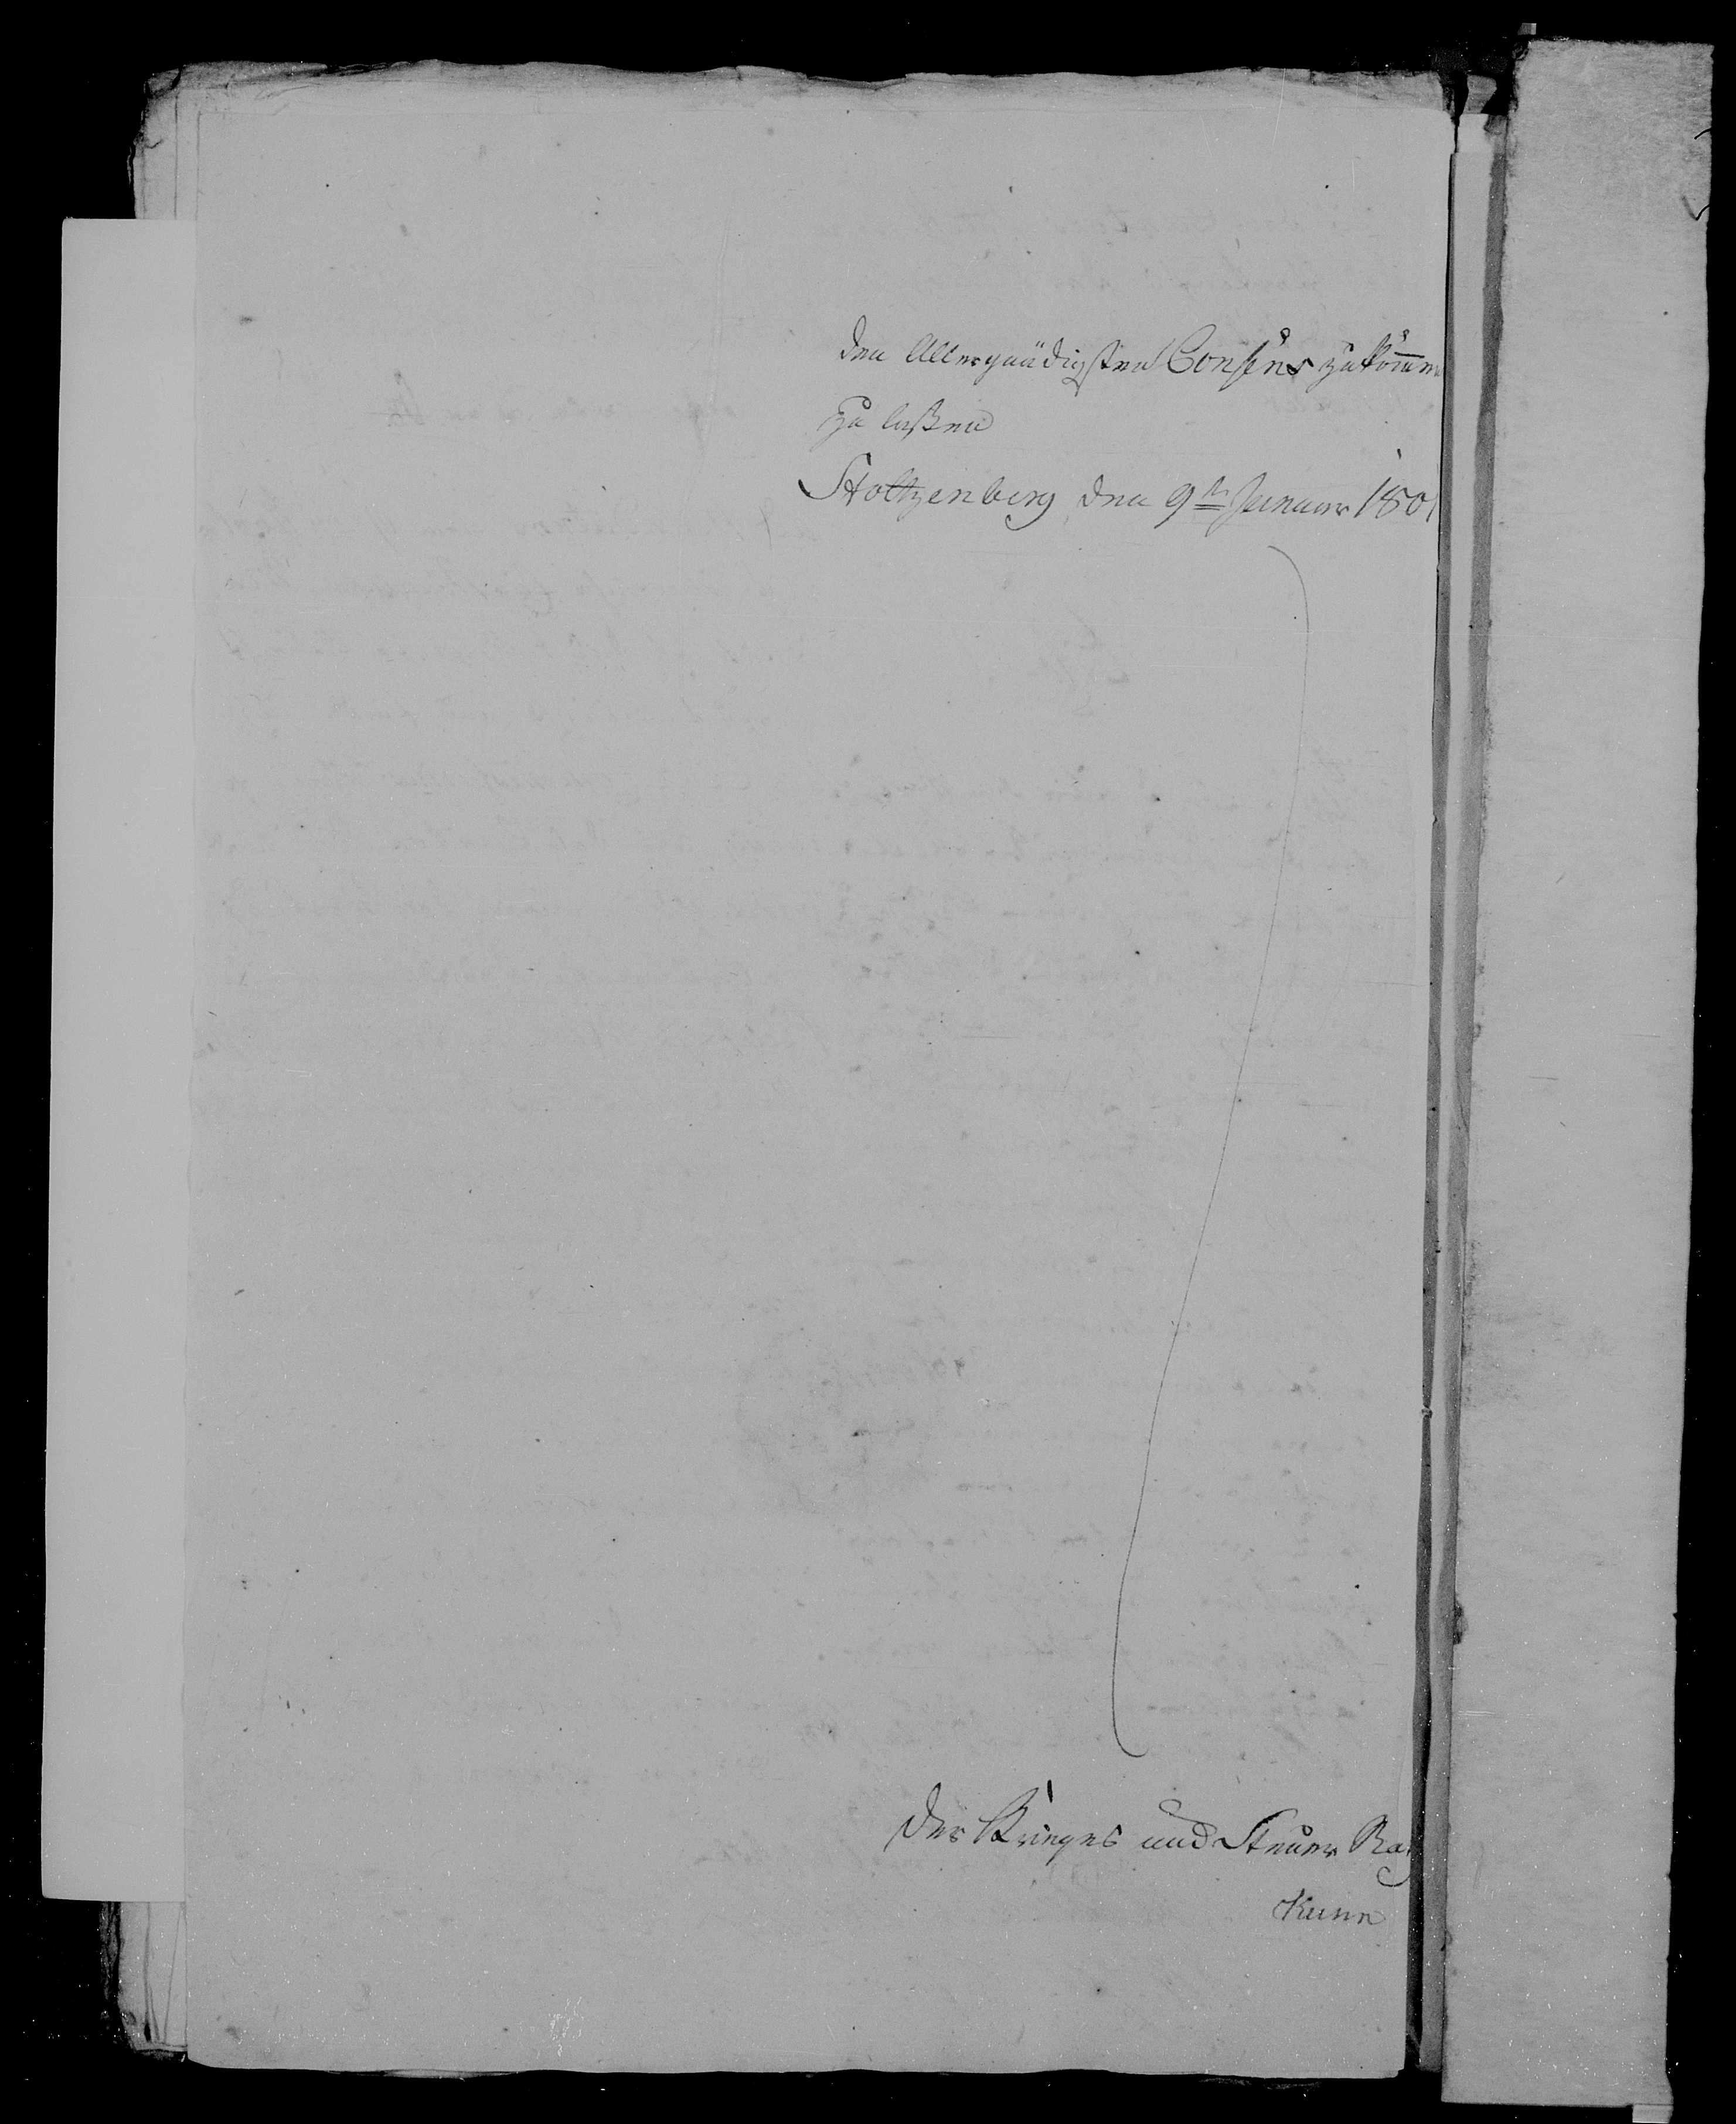 den Allergnädigsten Consens zukom̅en
zu laßen
Stoltzenberg den 9<sup>tn</sup> Januar 1801
Der Krieges und Steuer Rath